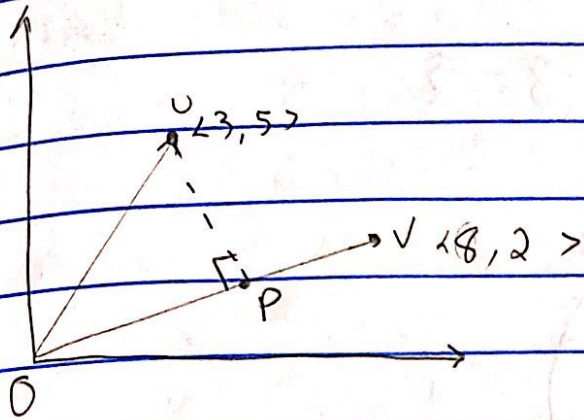 U <3,5>
V <8,2>
P
O